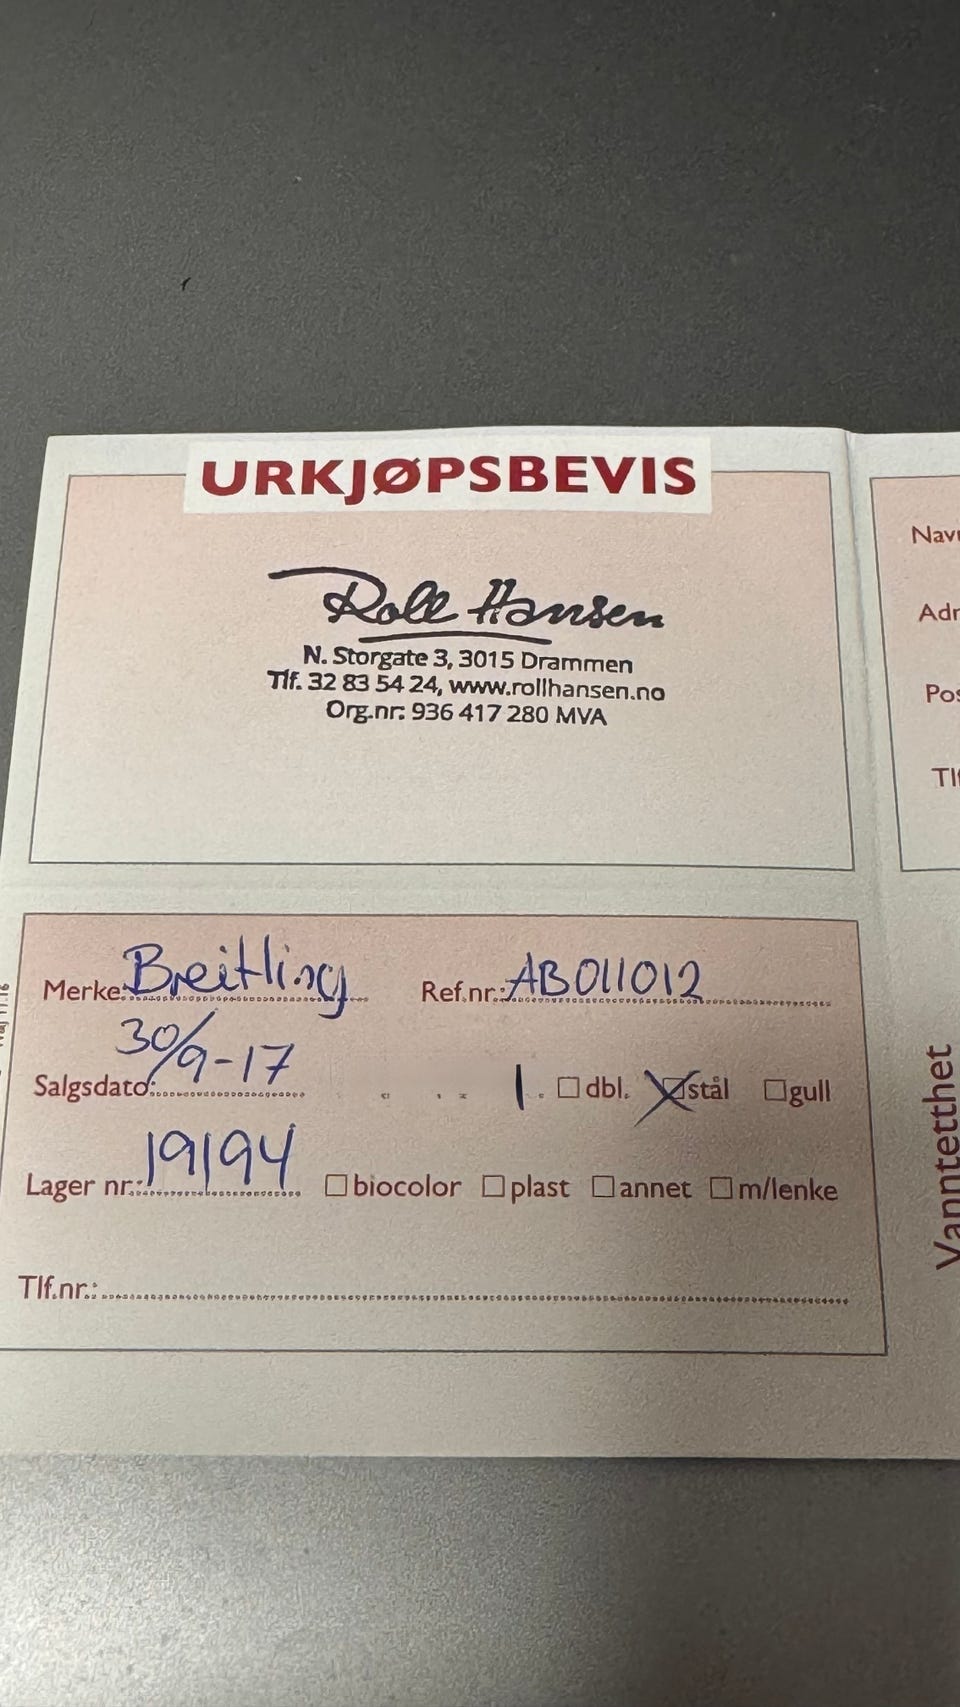 URKJØPSBEVIS
Roll Hansen
N. Storgate 3, 3015 Drammen
Tlf. 32 83 54 24, www.rollhansen.no
Org.nr: 936 417 280 MVA
Merke: Breitling Ref.nr.: AB011012
Salgsdato: 30/9-17 dbl. stål gull
Lager nr.: 19194 biocolor plast annet m/lenke
Tlf.nr.:
Nav
Adr
Pos
Tl
Vanntetthet